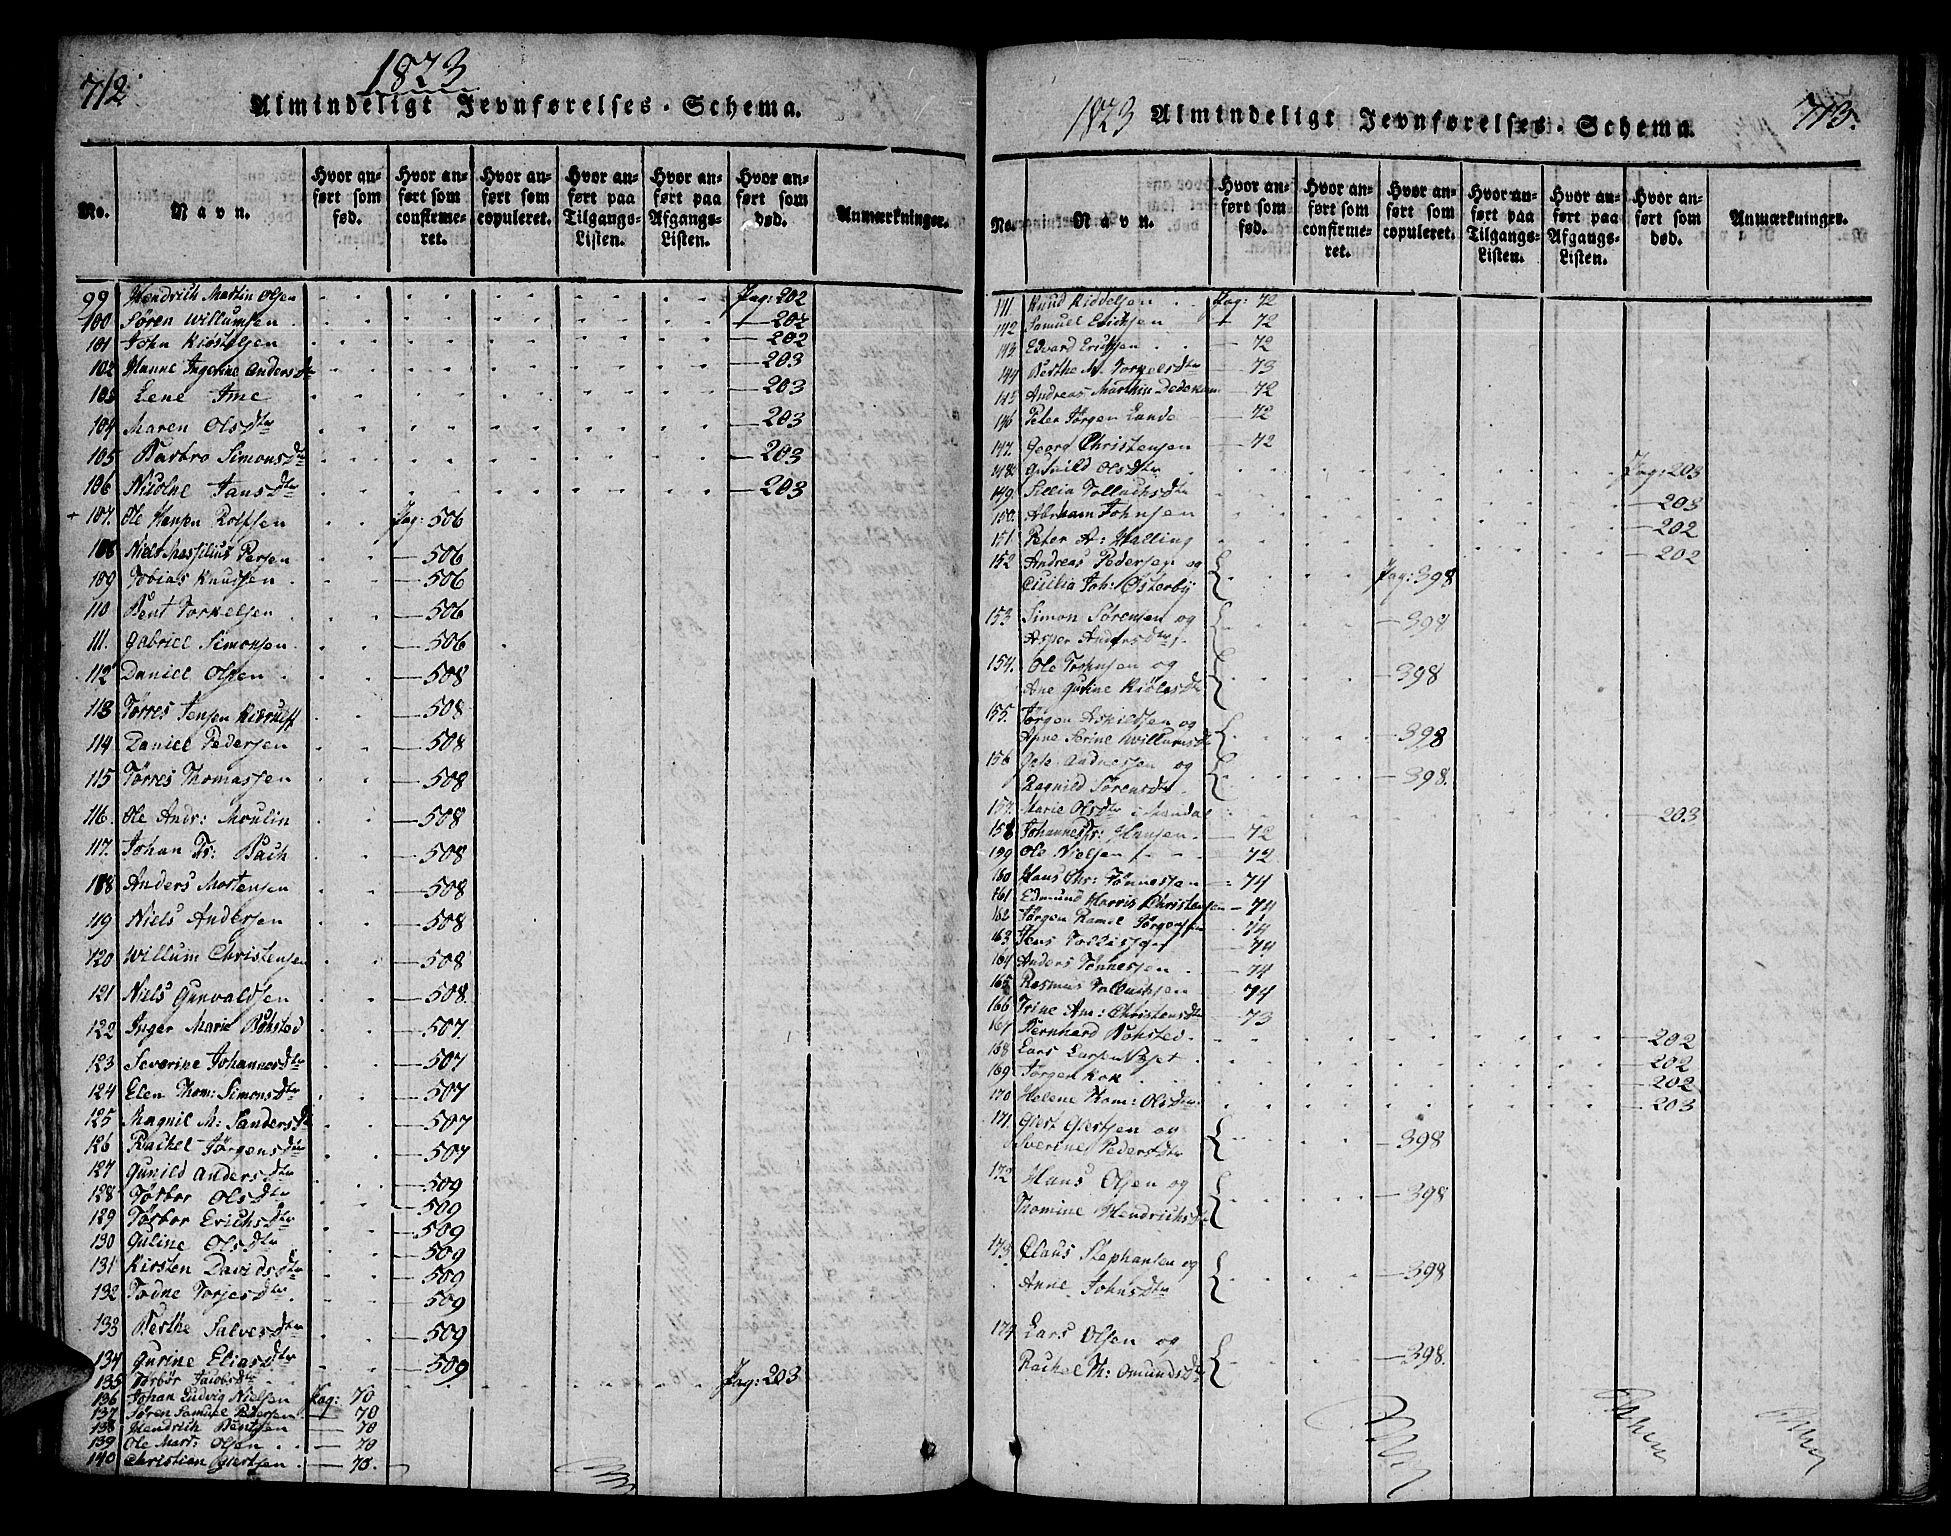 712.
1823
Almindeligt Jevnførelses-Schema.
No.
Navn.
Hvor anført som fød.
Hvor anført som confirmeret.
Hvor anført som copuleret.
Hvor anført paa Tilgangs-Listen.
Hvor anført paa Afgangs-Listen.
Hvor anført som død.
Anmærkninger.
99 Hendrich Martin Olsen Pag: 202
100 Søren Willumsen — 202
101 John Kirstelsen — 202
102 Hanne Ingerine Andersdtr — 203
103 Lene Ime — 203
104 Maren Olsdtr — 203
105 Barbro Simonsdtr — 203
106 Nicoline Jansdtr — 203
107. Ole Hansen Rolfsen Pag: 506
108 Niels Massilius Persen — 506
109 Tobias Knudsen — 506
110 Bent Torkelsen — 506
111. Gabriel Simonsen — 506
112 Daniel Olsen — 508
113 Tørres Jensen — 508
114 Daniel Pedersen — 508
115 Tørres Thomassen — 508
116. Ole Andr: Moulin — 508
117. Johan Bach — 508
118 Anders Mortensen — 508
119 Niels Andersen — 508
120 Willum Christensen — 508
121 Niels Gunvaldsen — 508
122 Inger Marie Bohsted — 507
123 Severine Johannesdtr — 507
124 Elen Thom: Simonsdtr — 507
125 Magnil M: Sandersdtr — 507
126 Rachel Jørgensdtr — 507
127 Gunild Andersdtr — 509
128 Torbor Olsdtr — 509
129 Torbor Erichsdtr — 509
130 Guline Olsdtr — 509
131 Kirsten Davidsdtr — 509
132 Todne Torjesdtr — 509
133 Berthe Salvesdtr — 509
134 Gurine Eliasdtr — 509
135 Torbor Jacobsdtr Pag: 203
136 Johan Ludvig Nielsen Pag: 70
137 Søren Samuel Pedersen — 70
138 Hendrich Bentsen — 70
139 Ole Mart: Olsen — 70
140 Christian Giertsen — 70.
1823 Almindeligt Jevnførelses-Schema.
713.
No.
Navn.
Hvor anført som fød.
Hvor anført som confirmeret.
Hvor anført som copuleret.
Hvor anført paa Tilgangs-Listen.
Hvor anført paa Afgangs-Listen.
Hvor anført som død.
Anmærkninger.
141. Knud Kiddelsen Pag: 72
142 Samuel Erichsen — 72
143 Edvard Erichsen — 72
144 Berthe M. Torkelsdtr — 73
145 Andreas Marthin Dedekam — 72
146 Peter Jørgen Lande — 72
147. Georg Christensen — 72
148 Gunild Olsdtr Pag: 203
149. Sillia Tollachsdtr — 203
150. Abraham Johnsen — 202
151. Peter A: Halling — 202
152 Andreas Pedersen og
Cicilia Joh: Østerby Pag: 398
153 Simon Sørensen og
Asper Andersdtr — 398
154. Ole Tosensen og
Ane Gurine Kiølesdtr — 398
155. Jørgen Askildsen og
Anne Serine Willumsdtr — 398
156 Gete Andersen og
Ragnild Sørensdtr — 398.
157. Marie Olsdtr i Mandal — 203
158 Johannes Hansen. — 72
159 Ole Nielsen — 72
160 Hans Chr: Tønnessen — 74
161 Edmund Harris Christensen — 74
162 Jørgen Ramel Jørgensen — 74
163 Jens Tollissen — 74
164 Anders Tønnessen — 74
165 Rasmus Tollachsen — 74
166 Trine An: Christensdtr — 73
167 Bernhard Bohsted. — 202
168 Lars Larsen Neset — 202
169 Jørgen Kok — 202
170 Helene Thom: Olsdtr — 203
171. Giert Giertsen og
Sverine Pedersdtr — 398
172 Hans Olsen og
Thomine Hendrichsdtr — 398
173. Claus Stephansen og
Anne Johnsdtr — 398
174. Lars Olsen og
Rachel Th: Omundsdtr — 398.